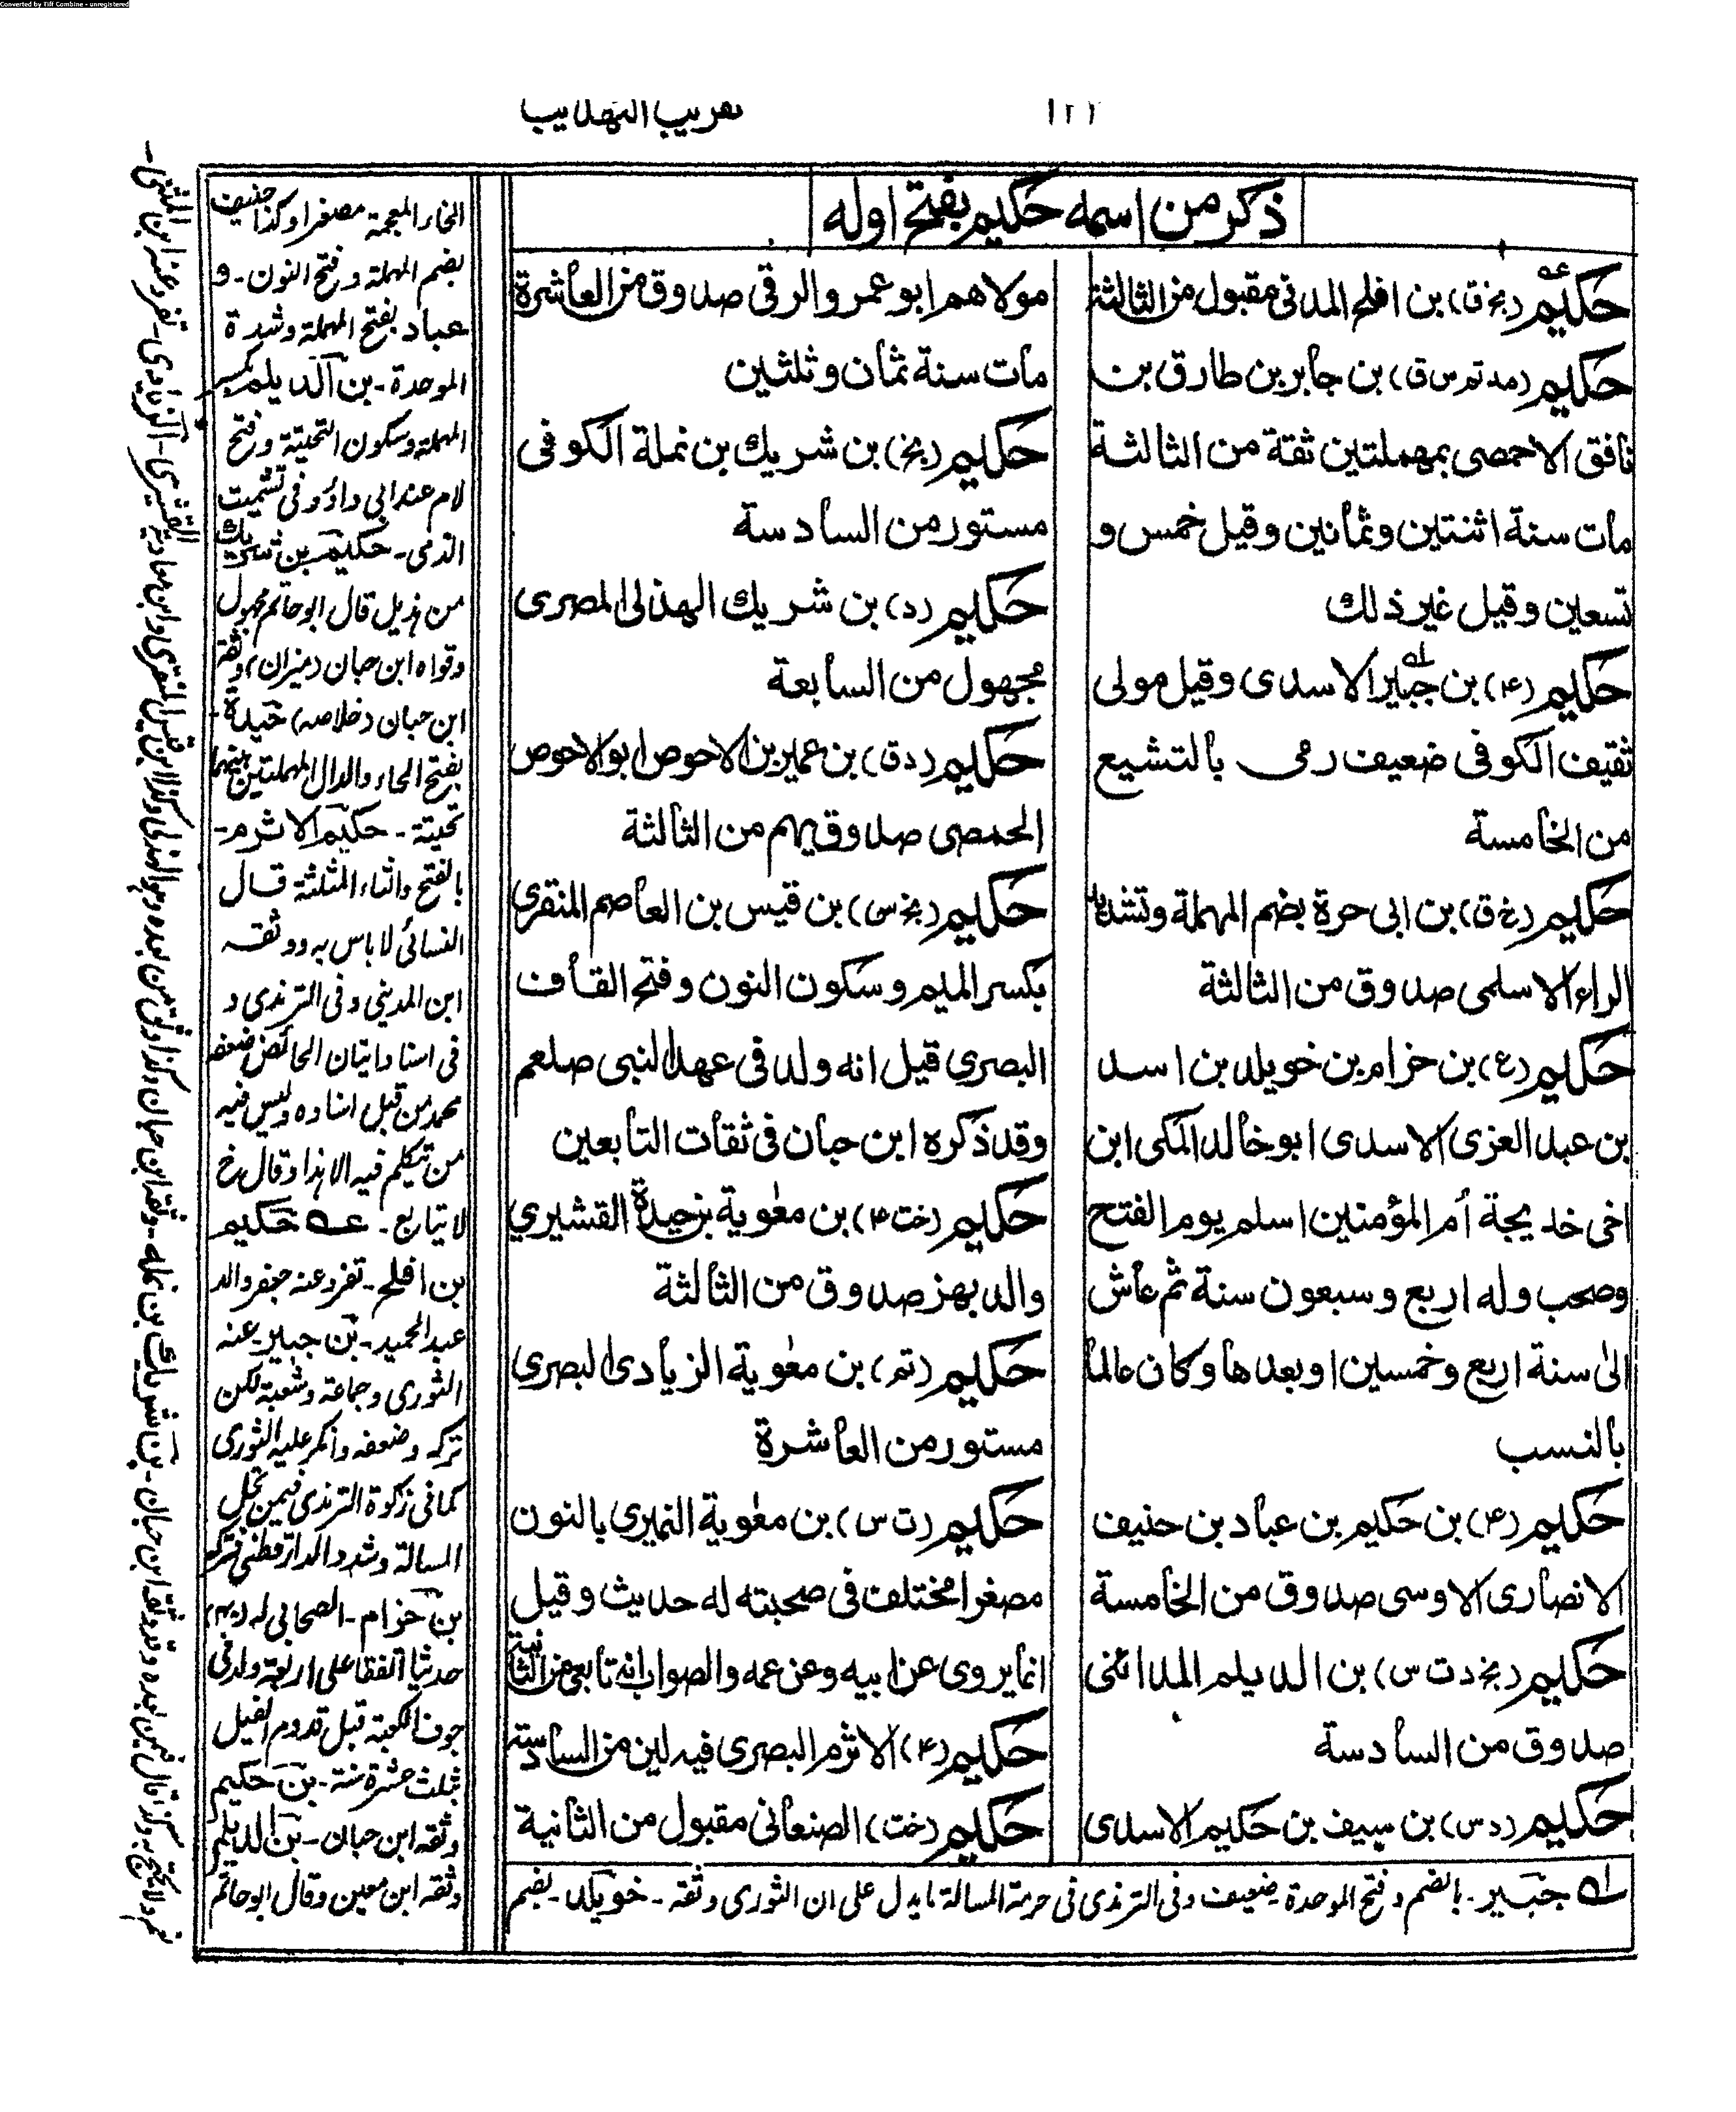 Converted by Tiff Combine - unregistered
١٢٢
تقريب التهذيب
ذكر من اسمه حكيم بفتح اوله
حكيم (بخ ق) بن افلح المدني مقبول من الثالثة
حكيم (مد تم س ق) بن جابر بن طارق بن
الاحمصى بمهملتين ثقة من الثالثة
مات سنة اثنتين وثمانين وقيل خمس و
تسعين وقيل غير ذلك
حكيم (٤) بن جبير الاسدى وقيل مولى
ثقيف الكوفى ضعيف رمى بالتشيع
من الخامسة
حكيم (خ ق) بن ابى حرة بضم المهملة وتشديد
الراء الاسلمى صدوق من الثالثة
حكيم (ع) بن حزام بن خويلد بن اسد
بن عبد العزى الاسدى ابو خالد المكى ابن
اخى خديجة أم المؤمنين اسلم يوم الفتح
وصحب وله اربع وسبعون سنة ثم عاش
الى سنة اربع وخمسين او بعدها وكان عالما
بالنسب
حكيم (٤) بن حكيم بن عباد بن حنيف
الانصارى الاوسى صدوق من الخامسة
حكيم (بخ د ت س) بن الديلم المدائنى
صدوق من السادسة
حكيم (د س) بن سيف بن حكيم الاسدى
مولاهم ابو عمرو الرقى صدوق من العاشرة
مات سنة ثمان وثلثين
حكيم (بخ) بن شريك بن نملة الكوفى
مستور من السادسة
حكيم (د) بن شريك الهذلى المصرى
مجهول من السابعة
حكيم (د ق) بن عمير بن الاحوص ابو الاحوص
الحمصى صدوق يهم من الثالثة
حكيم (بخ س) بن قيس بن العاصم المنقري
بكسر الميم وسكون النون وفتح القاف
البصري قيل انه ولد فى عهد النبى صلعم
وقد ذكره ابن حبان فى ثقات التابعين
حكيم (خت ٤) بن معوية بن حيدة القشيري
والد بهز صدوق من الثالثة
حكيم (تم) بن معوية الزيادى البصري
مستور من العاشرة
حكيم (ت س) بن معوية النميري بالنون
مصغرا مختلف فى صحبته له حديث وقيل
انما يروى عن ابيه وعن عمه والصواب انه تابعى من الثانية
حكيم (٤) الاثرم البصرى فيه لين من السادسة
حكيم (خت) الصنعانى مقبول من الثانية
له جبير - بالضم وفتح الموحدة ضعيف وفى الترمذى فى حرمة المسالة ما يدل على ان الثورى وثقه - خويلد - بضم
الخاء المعجمة مصغرا وكذا حنيف
بضم المهملة وفتح النون - و
عباد بفتح المهملة وشدة
الموحدة - بن الديلم بكسر
المهملة وسكون التحتية وفتح
لام عند ابى داؤد فى تشميت
الذمى - حكيم بن شريك
من هذيل قال ابو حاتم مجهول
وقواه ابن حبان (ميزان) وثقه
ابن حبان (خلاصه) حيدة -
بفتح الحاء والدال المهملتين بينهما
تحتية - حكيم الاثرم -
بالفتح والثاء المثلثة قال
النسائى لا باس به ووثقه
ابن المدينى وفى الترمذى و
فى اسناد اتيان الحائض ضعفه
محمد من قبل اسناده وليس فيه
من تكلم فيه الا هذا وقال خ
لا يتابع - عه حكيم
بن افلح - تفرد عنه جعفر والد
عبد الحميد - بن جبير - عنه
الثورى وجماعة وشعبة لكن
تركه وضعفه وانكر عليه الثورى
كما فى زكوة الترمذى فيمن تحل
المسالة وشدد الدارقطنى فتركه
بن حزام - الصحابى له (٤٠)
حديثا اتفقا على اربعة ولد فى
جوف الكعبة قبل قدوم الفيل
بثلث عشرة سنة - بن حكيم
وثقه ابن حبان - بن الديلم
وثقه ابن معين وقال ابو حاتم